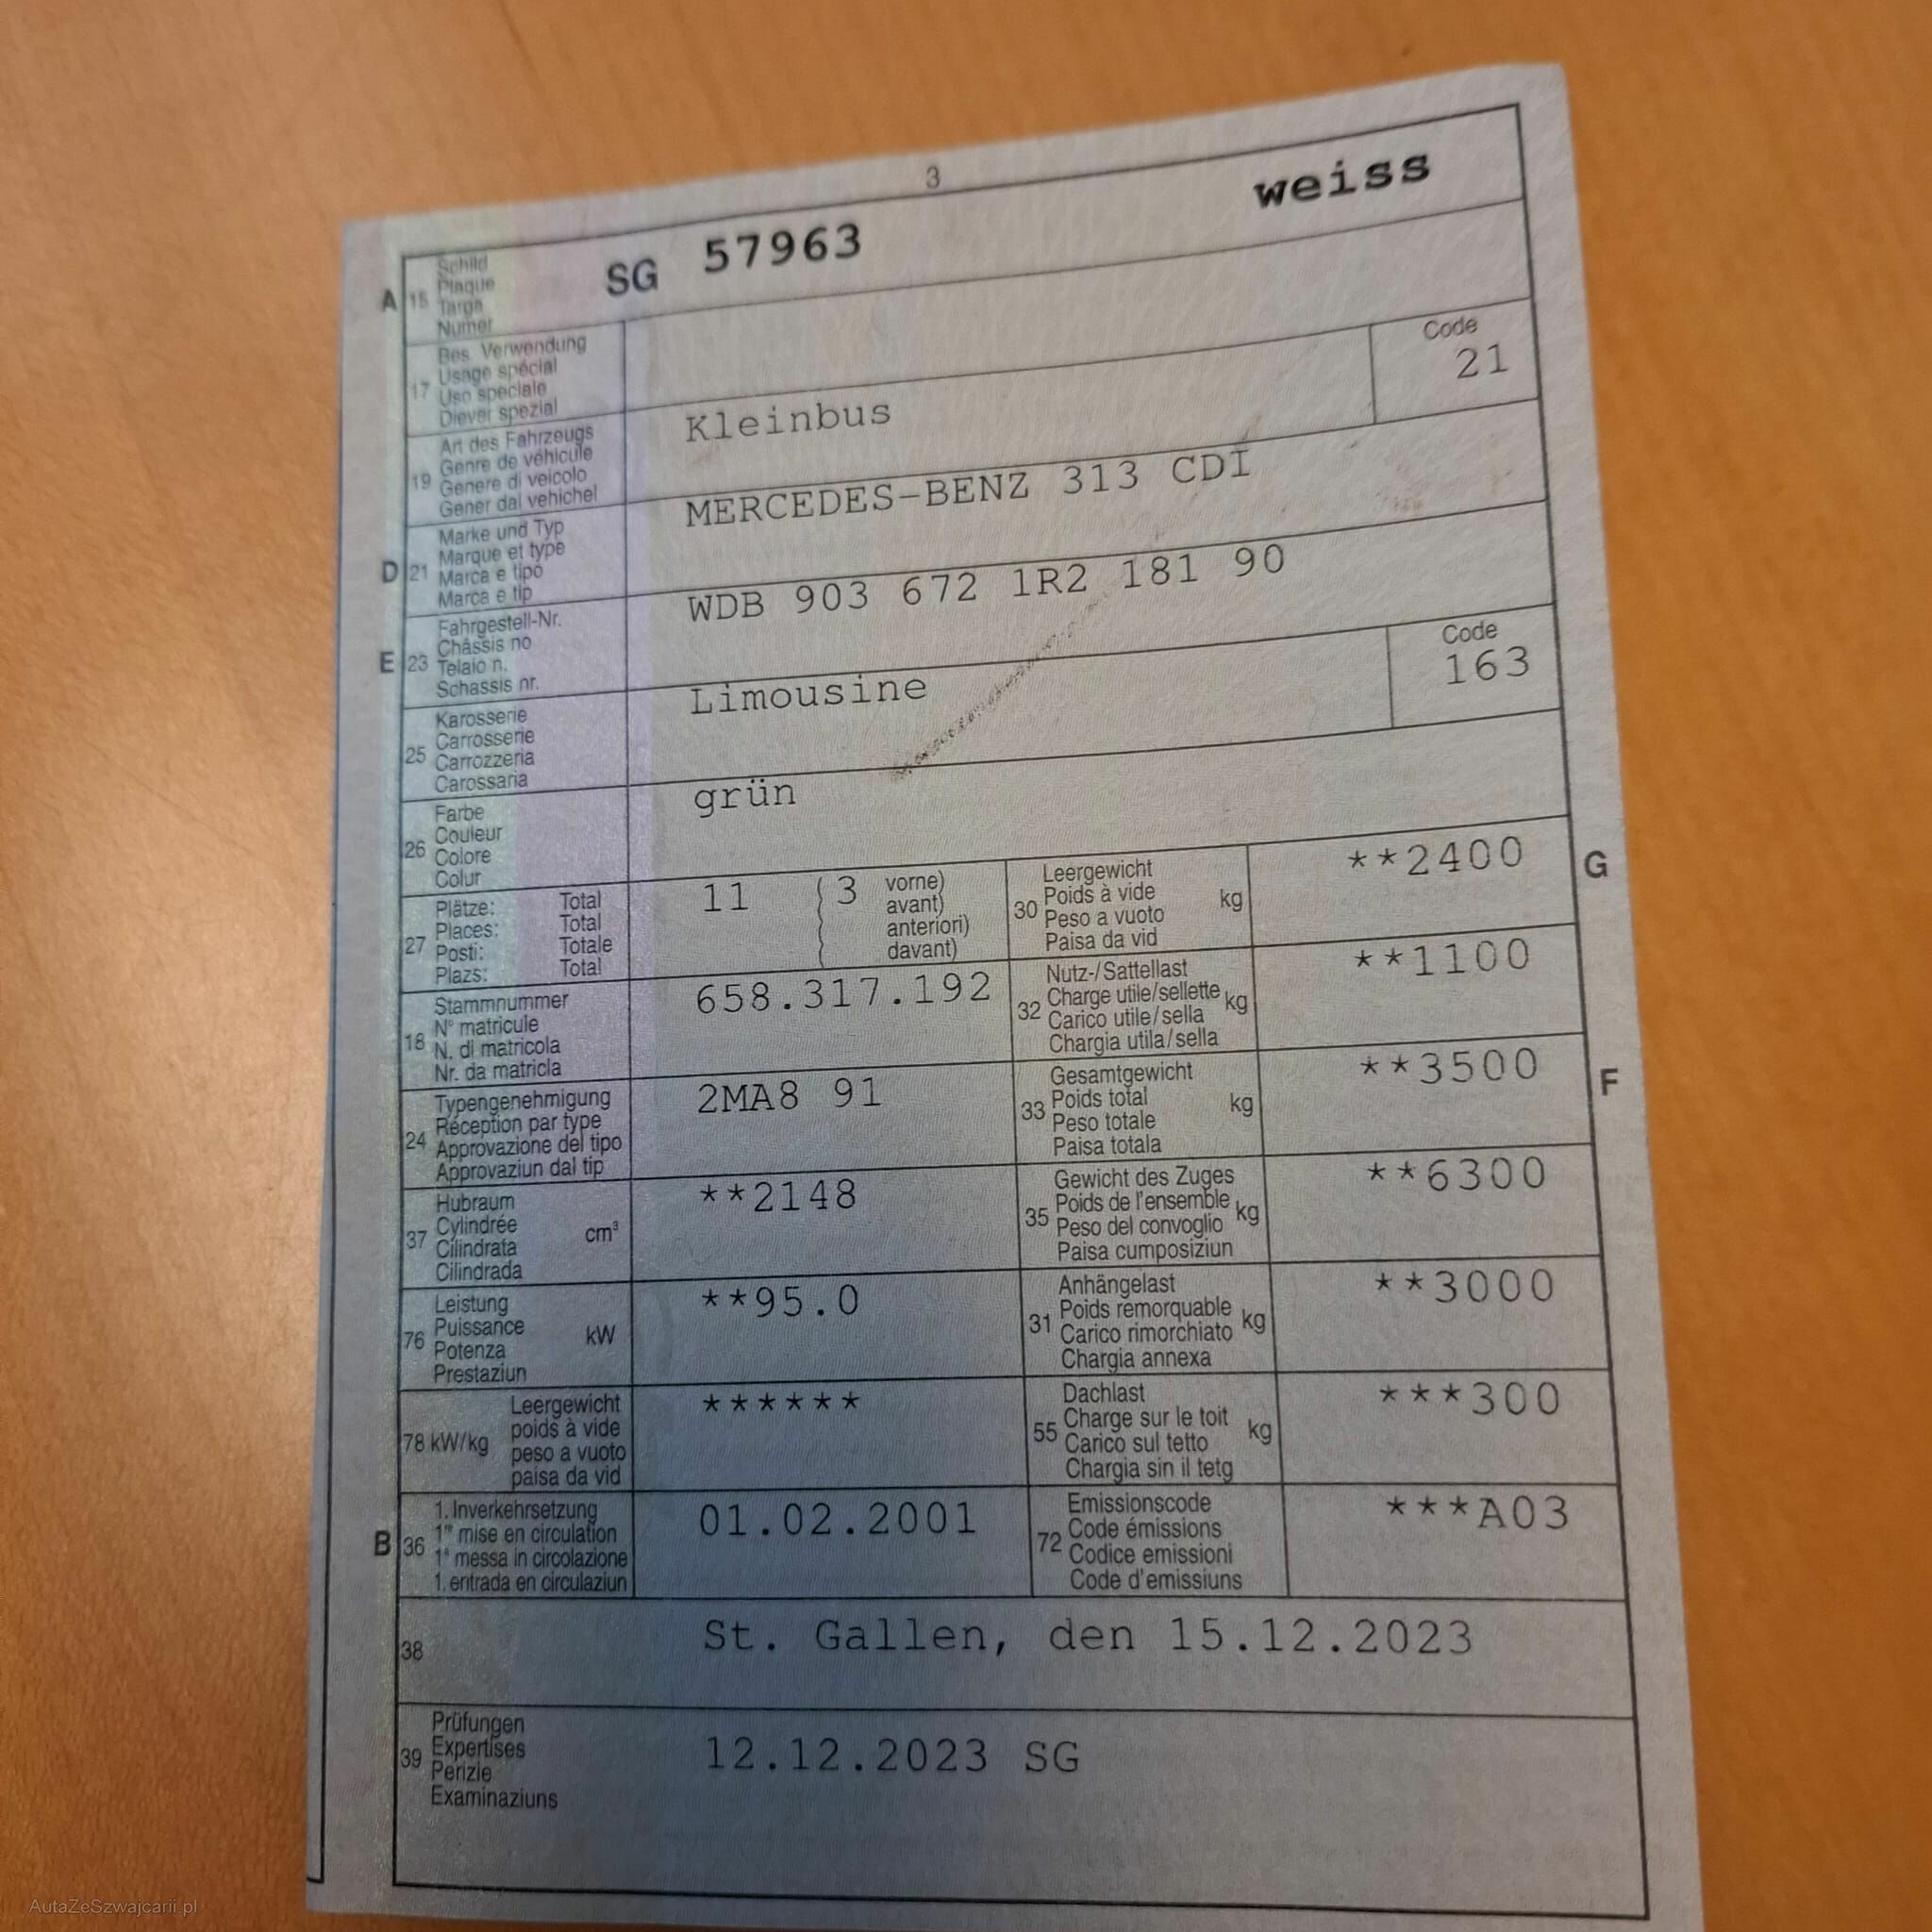 3
A 15 Schild
Plaque
Targa
Numer
SG 57963 weiss
17 Bes. Verwendung
Usage spécial
Uso speciale
Diever spezial
19 Art des Fahrzeugs
Genre de véhicule
Genere di veicolo
Gener dal vehichel
Kleinbus
Code
21
D 21 Marke und Typ
Marque et type
Marca e tipo
Marca e tip
MERCEDES-BENZ 313 CDI
E 23 Fahrgestell-Nr.
Châssis no
Telaio n.
Schassis nr.
WDB 903 672 1R2 181 90
25 Karosserie
Carrosserie
Carrozzeria
Carossaria
Limousine
Code
163
26 Farbe
Couleur
Colore
Colur
grün
27 Plätze: Total
Places: Total
Posti: Totale
Plazs: Total
11 (3 vorne)
avant)
anteriori)
davant)
30 Leergewicht
Poids à vide
Peso a vuoto
Paisa da vid
kg
**2400
G
18 Stammnummer
N° matricule
N. di matricola
Nr. da matricla
658.317.192
32 Nutz-/Sattellast
Charge utile/sellette
Carico utile/sella
Chargia utila/sella
kg
**1100
24 Typengenehmigung
Réception par type
Approvazione del tipo
Approvaziun dal tip
2MA8 91
33 Gesamtgewicht
Poids total
Peso totale
Paisa totala
kg
**3500
F
37 Hubraum
Cylindrée
Cilindrata
Cilindrada
cm³
**2148
35 Gewicht des Zuges
Poids de l'ensemble
Peso del convoglio
Paisa cumposiziun
kg
**6300
76 Leistung
Puissance
Potenza
Prestaziun
kW
**95.0
31 Anhängelast
Poids remorquable
Carico rimorchiato
Chargia annexa
kg
**3000
78 kW/kg Leergewicht
poids à vide
peso a vuoto
paisa da vid
******
55 Dachlast
Charge sur le toit
Carico sul tetto
Chargia sin il tetg
kg
***300
B 36 1. Inverkehrsetzung
1re mise en circulation
1a messa in circolazione
1. entrada en circulaziun
01.02.2001
72 Emissionscode
Code émissions
Codice emissioni
Code d'emissiuns
***A03
38 St. Gallen, den 15.12.2023
39 Prüfungen
Expertises
Perizie
Examinaziuns
12.12.2023 SG
AutaZeSzwajcarii.pl